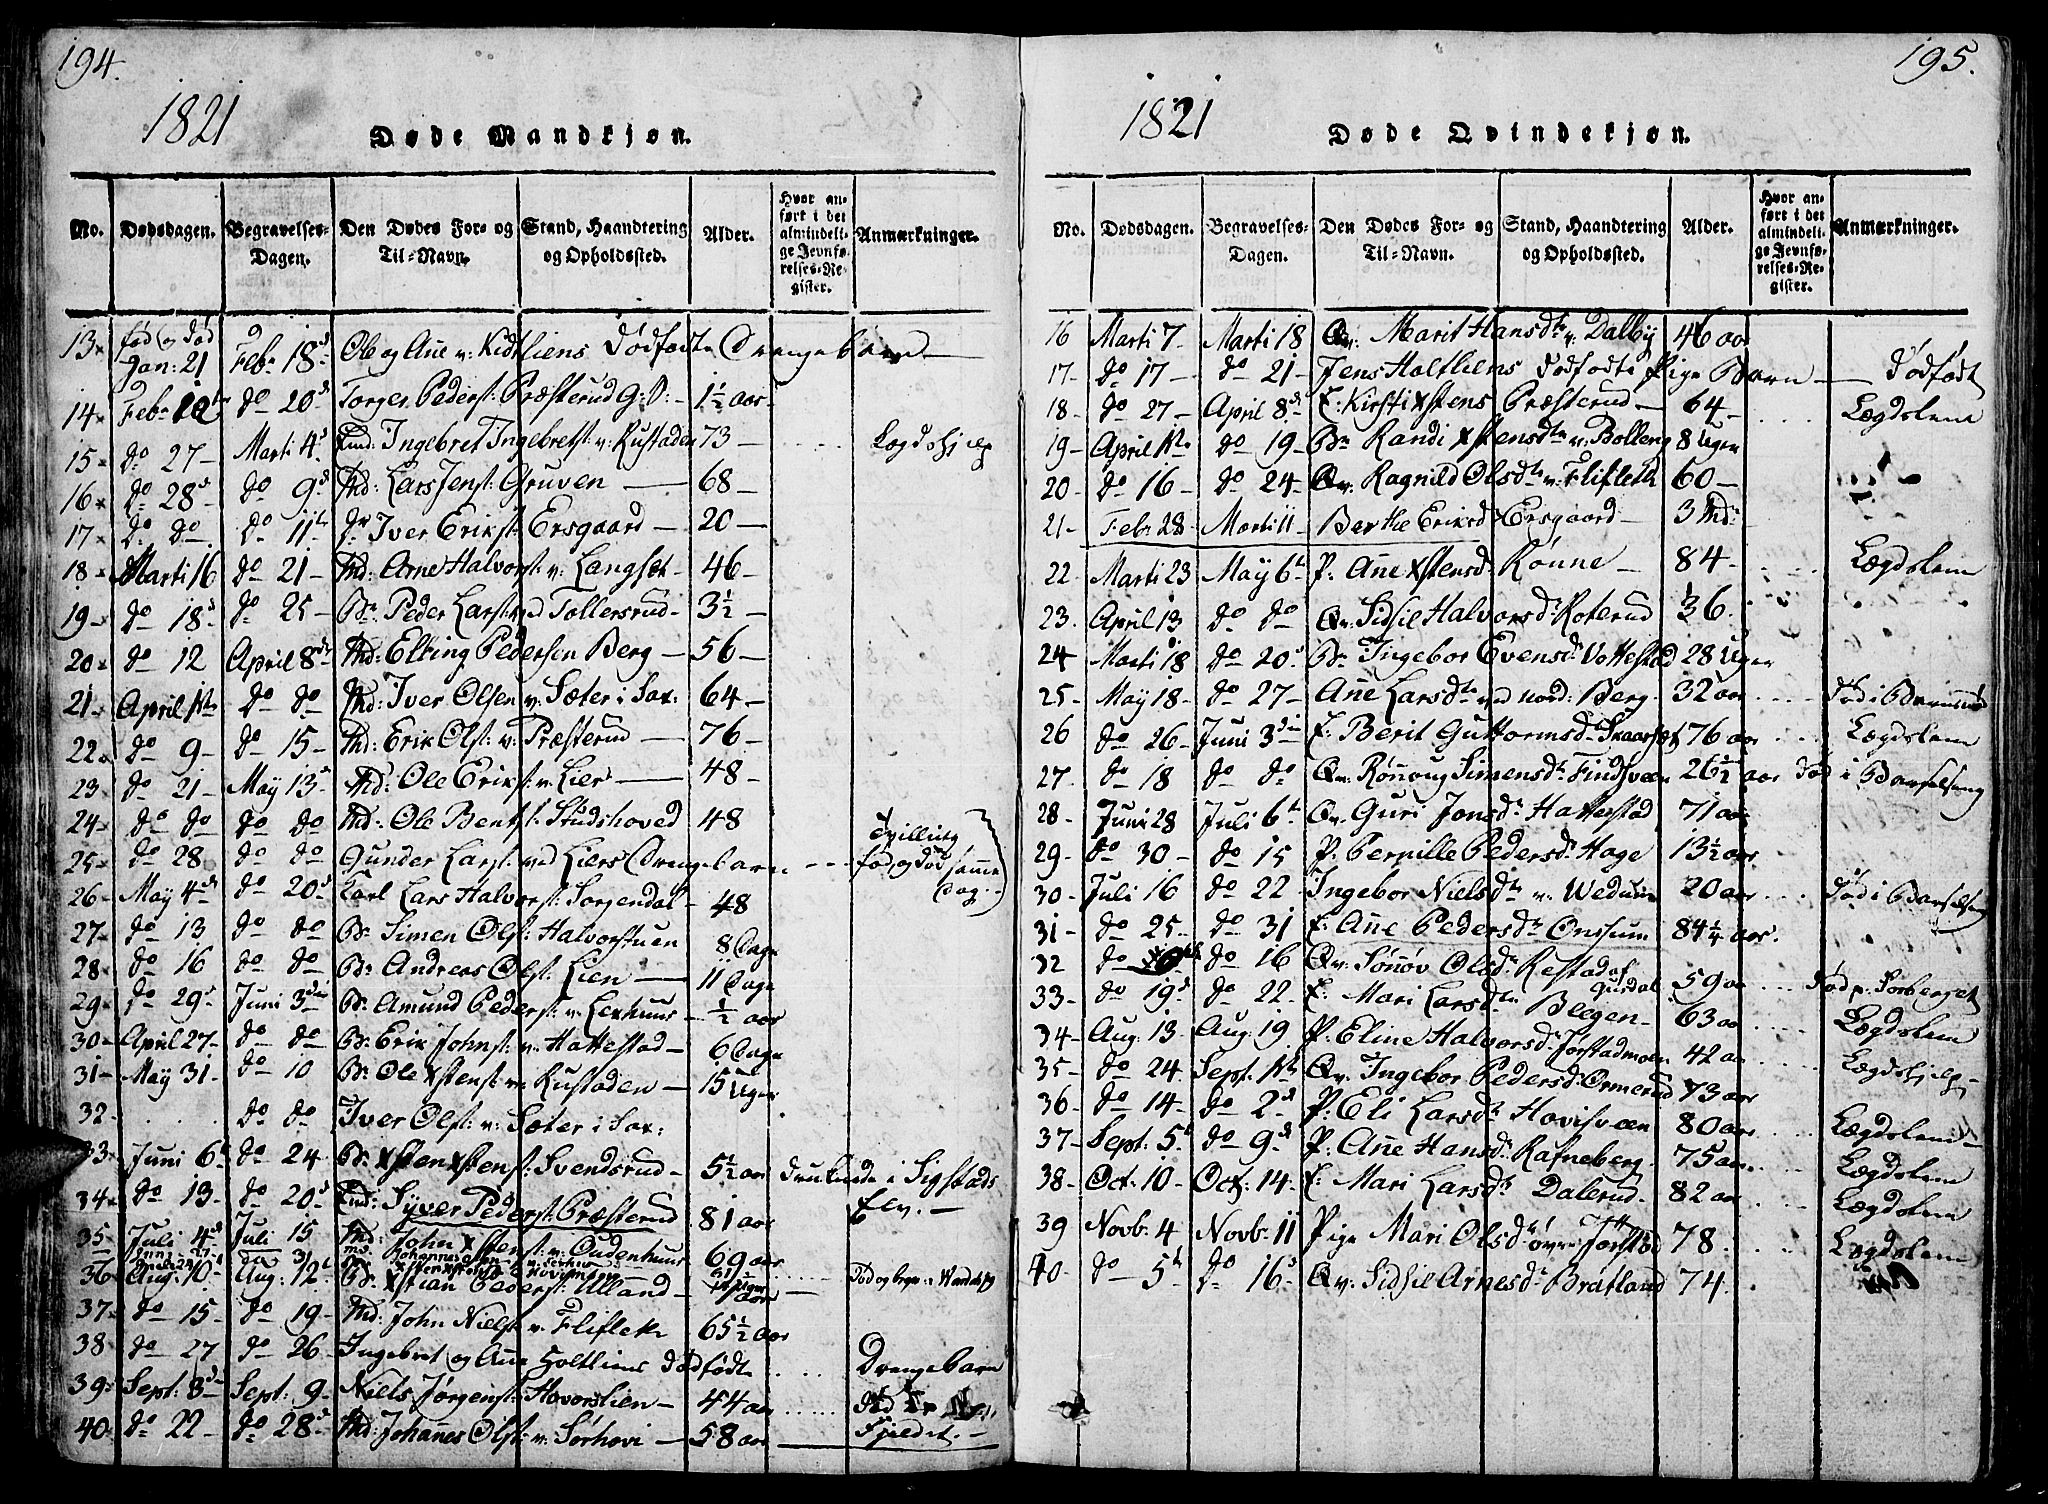 194.
1821
Døde Mandkjøn.
No. Dødsdagen. Begravelses-Dagen. Den Dødes For- og Til-Navn. Stand, Haandtering og Opholdssted. Alder. Hvor anført i det almindelige Jevnførelses-Register. Anmærkninger.
13 fød og død Jan: 21 Febr 18 Ole og Ane v: Kidtliens Dødfødte Drengebarn
14 Febr 12 do 20 Torger Peders: Præsterud G:D: 1½ aar
15 do 27 Marti 4 Ingebret Ingebrets: v: Rustaden 73 Lægdshielp
16 do 28 do 9 Md: Lars Jens: Gruven 68
17 do do do 11 Iver Eriks: Ersgaard 20
18 Marti 16 do 21 Md: Arne Halvors: v: Langset 46
19 do 18 do 25 Bn: Peder Lars: ved Tollersrud 3½
20 do 12 April 8de Md: Elling Pedersen Berg 56
21 April 1ste do do Md: Iver Olsen v: Sæter i Sax: 64
22 do 9 do 15 Md: Erik Ols: v: Præsterud 76
23 do 21 May 13 Md: Ole Eriks: v: Lier 48
24 do do do do Md: Ole Bents: Studshoved 48
25 do 28 do do Gunder Lars: ved Liers Drengebarn Tvilling fød og død samme Dag.
26 May 4 do 20 Karl Lars Halvors: Sorgendal 48
27 do 13 do do Bn: Simen Ols: Halvorstuen 8 Dage
28 do 16 do do Bn: Andreas Ols: Lien 11 Dage
29 do 29 Juni 3die Bn: Amund Peders: v: Lexhuus ½ aar
30 April 27 do do Bn: Erik Johns: v: Hattestad 6 Dage
31 May 31 do 10 Bn: Ole Xstens: v: Rustaden 15 Uger
32 . . . . do do Iver Ols: v: Sæter i Sax:
33 Juni 6 do 24 Bn: Xsten Xstens: Svendsrud 5½ aar Druknede i Sigstads Elv.
34 do 13 do 20 Syver Peders: Præsterud 81 aar
35 Juli 4 Juli 15 Md: John Xstens: v: Oudenhuus 69 aar
36 Aug: 10 Aug: 12 Bn: Xstian Peders: Ulland
37 do 15 do 19 Md: John Niels: v: Fliflet 65½ aar
38 do 27 do 26 Ingebret og Ane Holtliens dødfødt Drengebarn
39 Sept: 3 Sept: 9 Niels Jørgens: Hovorslien 44 aar
40 do 22 do 28 Md: Johanes Ols: v: Sørhovi 58 aar Fjeldet.
195.
1821
Døde Qvindekjøn.
No. Dødsdagen. Begravelses-Dagen. Den Dødes For- og Til-Navn. Stand, Haandtering og Opholdssted. Alder. Hvor anført i det almindelige Jevnførelses-Register. Anmærkninger.
16 Marti 7 Marti 18 Qv. Marit Hansdr v: Dalby 46 aar
17 do 17 do 21 Jens Holtliens Dødfødte Pige Barn Dødfødt
18 do 27 April 8de E: Kirsti Xstens Præsterud 64 Lægdslem
19 April 1ste do 19 Bn Randi Xstensdr v: Bolleng 8 Uger
20 do 16 do 24 Qv. Ragnild Olsdr v: Flifleth 60
21 Feb: 28 Marti 11 Berthe Eriksd Ersgaard 3 Md:
22 Marti 23 May 6 P: Ane Xstensd: Rønne 84 Lægdslem
23 April 13 do do Qv: Sidsil Halvorsd: Roterud 36
24 Marti 18 do 20 Bn: Ingebor Evensd: Vottestad 28 Uger
25 May 18 do 27 Ane Larsdr ved nord: Berg 32 aar
26 do 26 Juni 3die E: Berit Guttormsd: Skaarset 76 aar Lægdslem
27 do 18 do do Qv: Rønnoug Simensdr Findsveen 26½ aar Død i Barselseng
28 Juni 28 Juli 6 Qv: Guri Jonsdr Hattestad 71 aar
29 do 30 do 15 P: Pernille Pedersdr Hage 13½ aar
30 Juli 16 do 22 Ingebor Nielsdr v: Wedum 20 aar Død i Barselseng
31 do 25 do 31 E: Ane Pedersdr Onssum 84¼ aar
32 do do 16 Qv: Sønnøv Olsdr Restad af Gusdal 59 aar
33 do 19 do 22 E: Mari Larsdr Blegen 63 aar Lægdslem
34 Aug: 13 Aug: 19 P: Eline Halvorsd: Jorstadmoen 42 aar Lægdshielp
35 do 24 Sept: 1ste Qv: Ingebor Pedersd: Ormerud 73 aar
36 do 14 do 2 P: Eli Larsdr Hovisveen 80 aar Lægdslem
37 Sept: 5 do 9 P: Ane Hansdr Rafneberg 75 aar Lægdslem
38 Oct: 10 Oct: 14 E: Mari Larsdr Dalerud 82 aar Lægdslem
39 Novb: 4 Novb: 11 Pige Mari Olsdr øvre Jorstad 78 Lægdslem
40 do 5 do 16 Qv: Sidsil Arnesdr Bratland 74